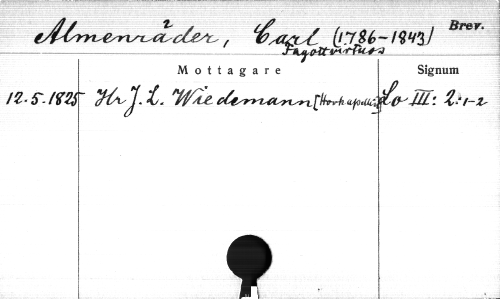 Almenräder, Carl (1786-1843) Brev.
Fagottvirtuos
Mottagare Signum
12.5.1825 Hr J. L. Wiedemann Lo III: 2:1-2